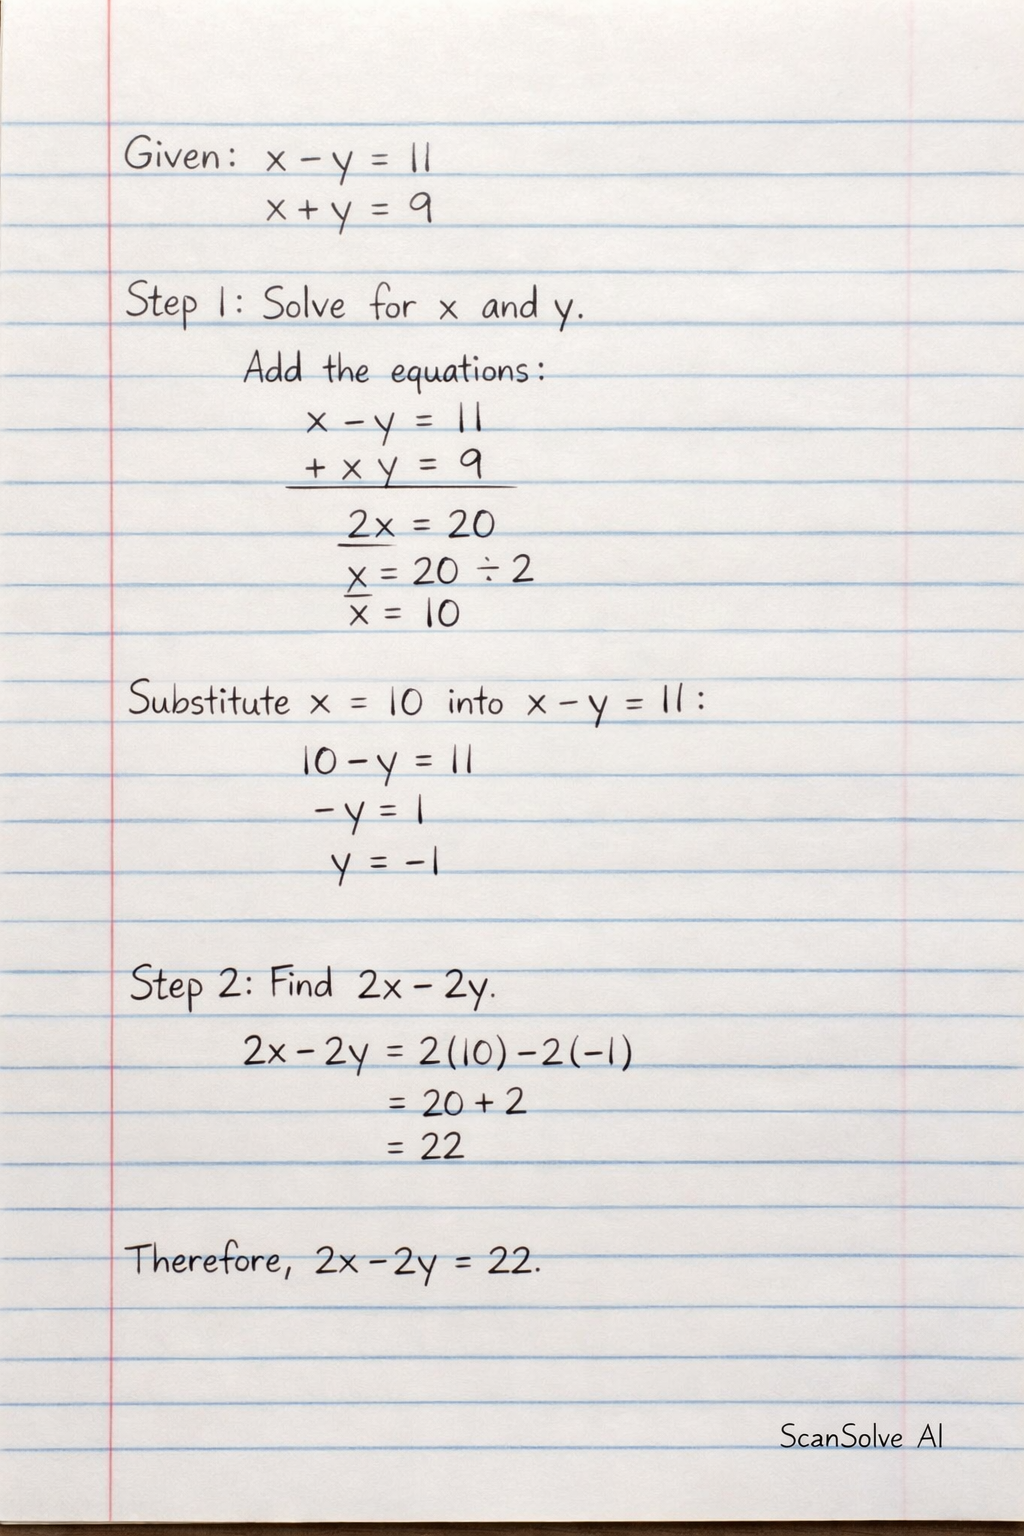 Given: x - y = 11
x + y = 9
Step 1: Solve for x and y.
Add the equations:
x - y = 11
+ x y = 9
2x = 20
x = 20 ÷ 2
x = 10
Substitute x = 10 into x - y = 11:
10 - y = 11
- y = 1
y = -1
Step 2: Find 2x - 2y.
2x - 2y = 2(10) - 2(-1)
= 20 + 2
= 22
Therefore, 2x - 2y = 22.
ScanSolve AI